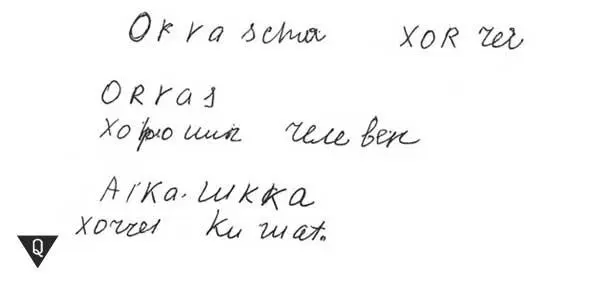 Orraschа XOR чеr
ORras
Хороший человек
Aika. шкка
хоччеr Кишат.
Q